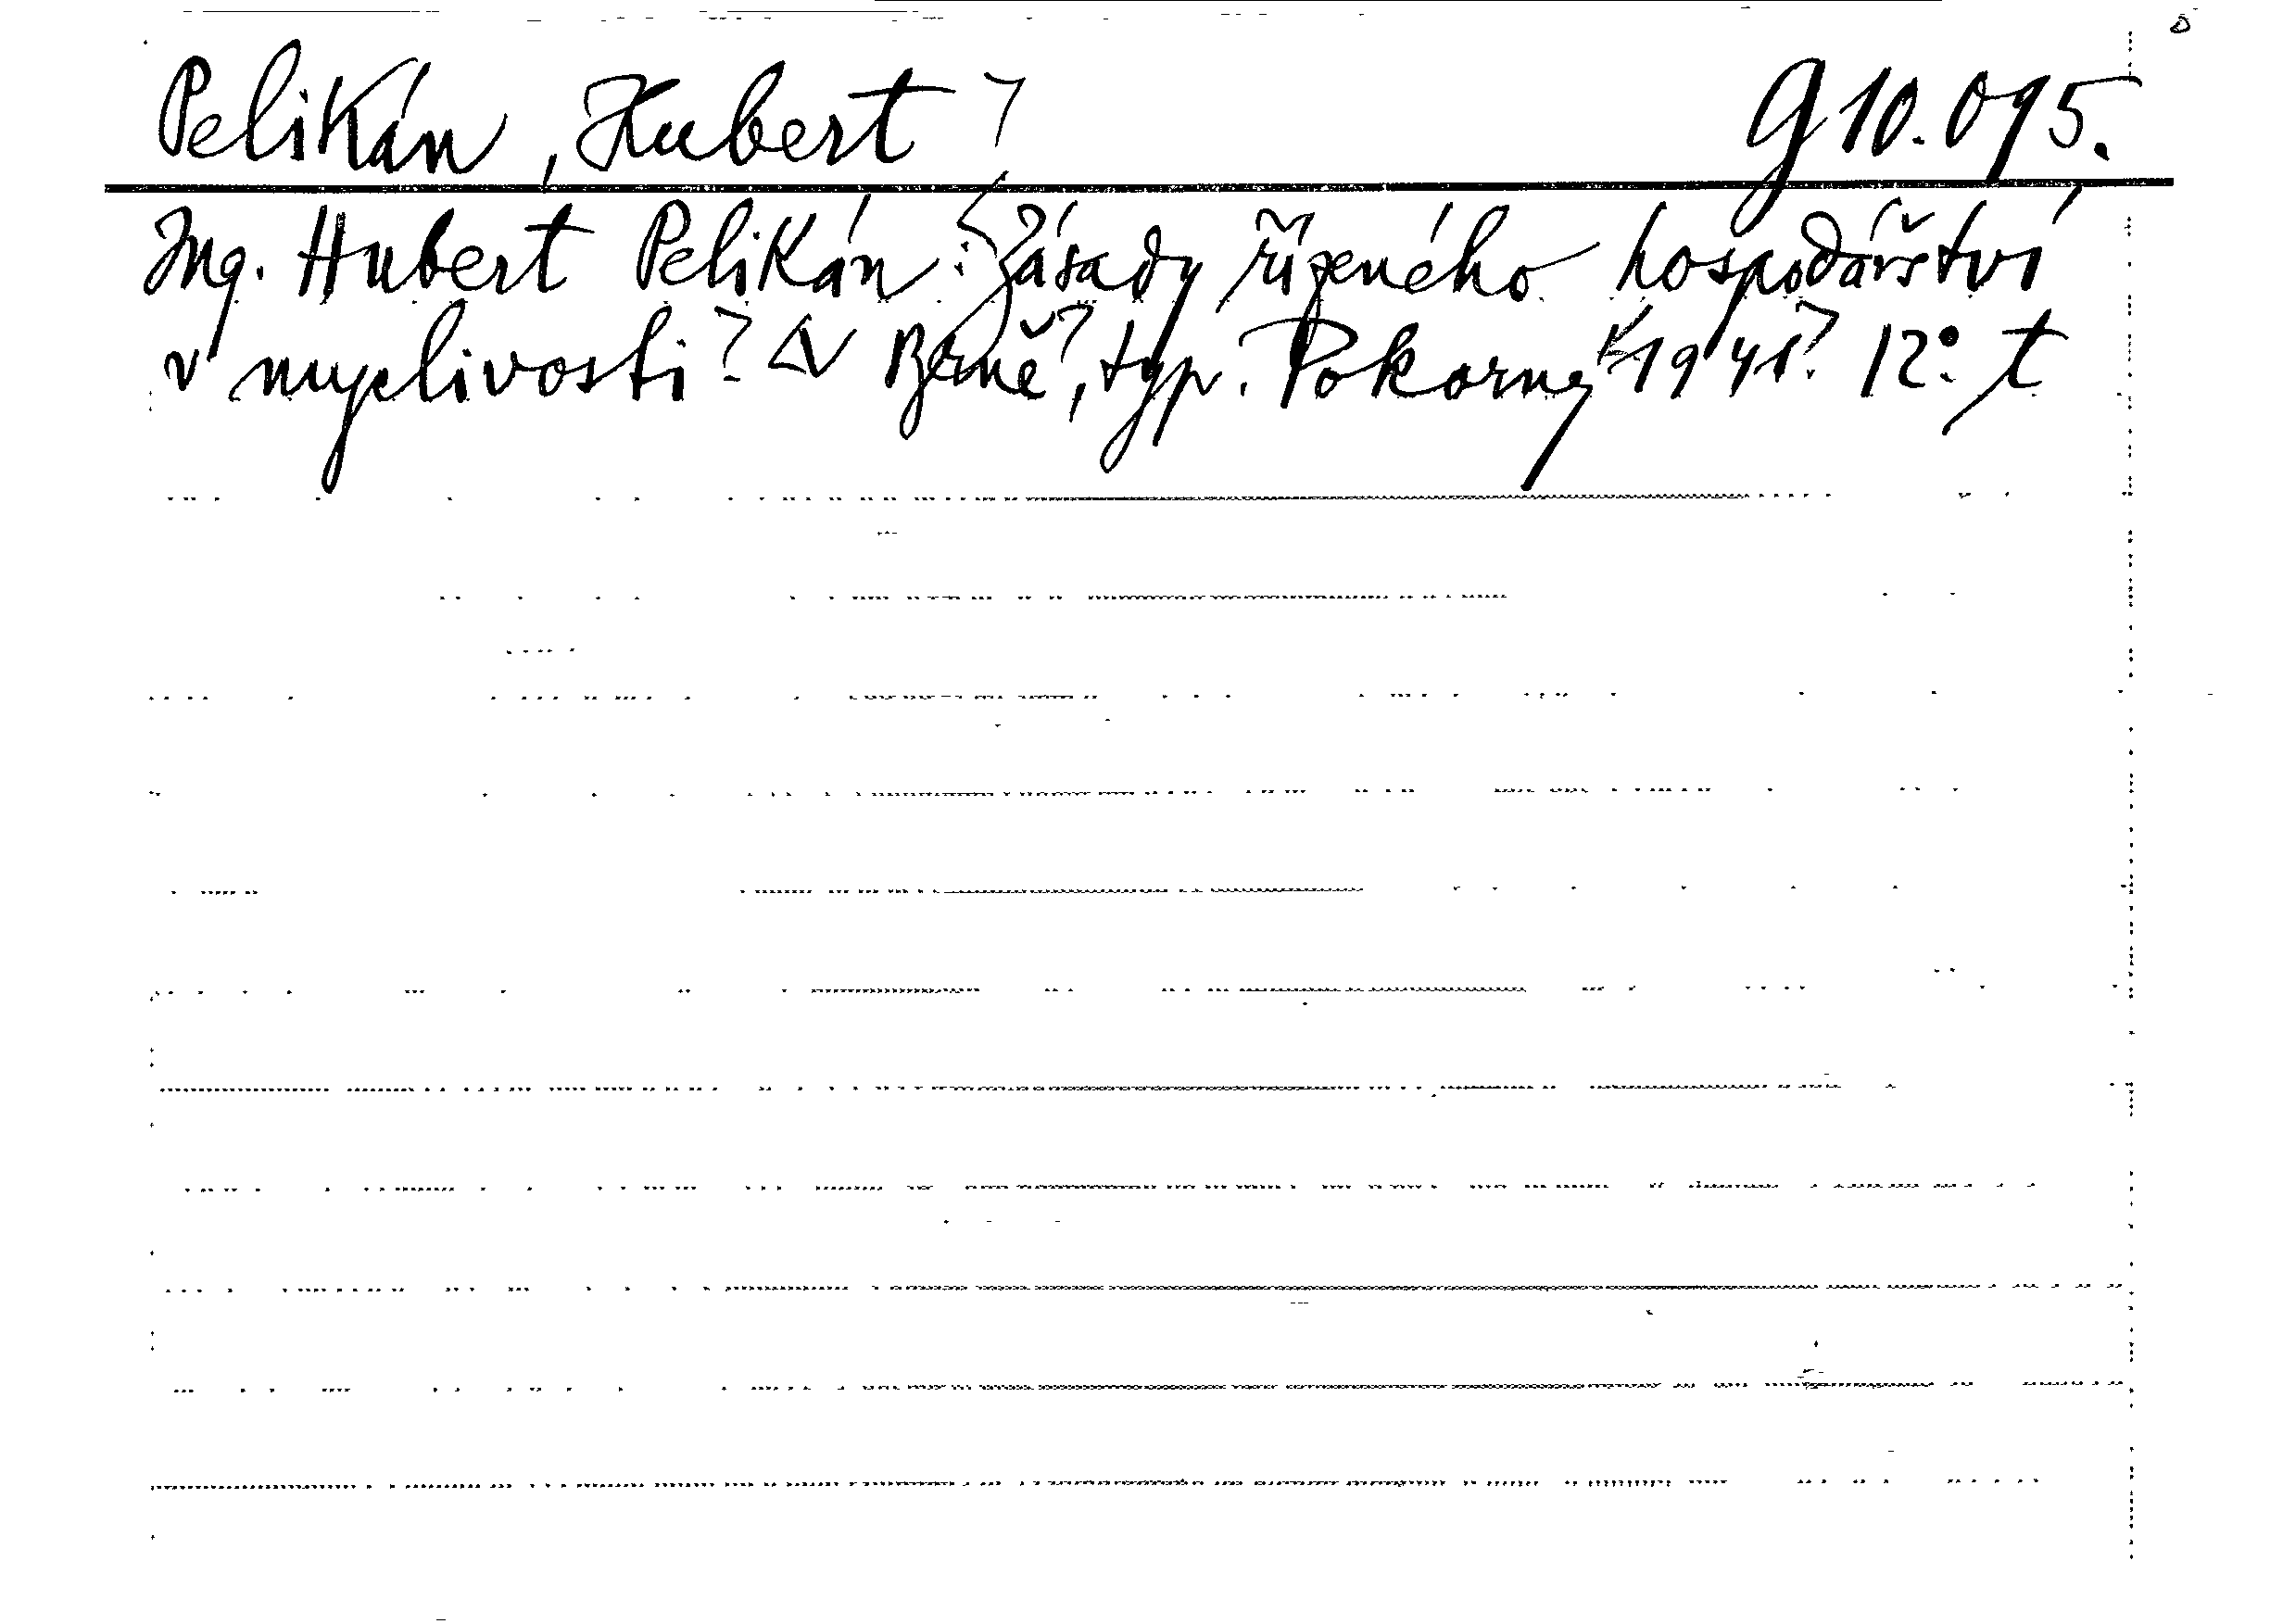 Pelikán, Hubert g 10.095.
Ing. Hubert Pelikán: Zásady řízeného hospodářství
v myslivosti. V Brně, typ. Pokorný 1941. 12° t